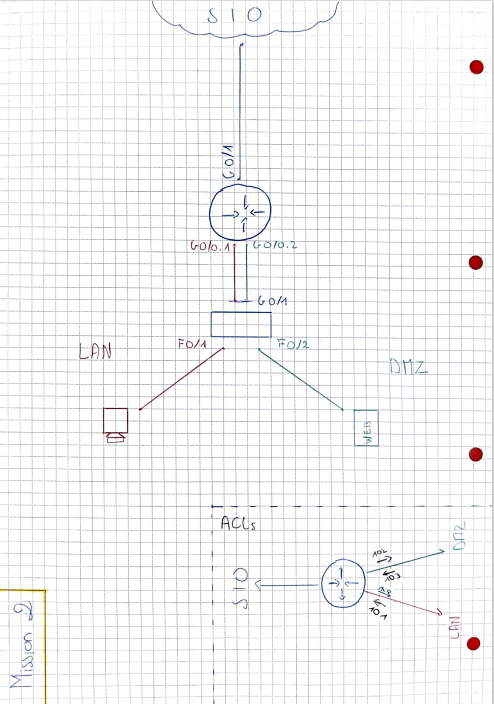 SIO
G0/1
G0/0.1
G0/0.2
G0/1
F0/1
F0/2
LAN
DMZ
WEB
ACLs
SIO
102
103
101
DMZ
LAN
Mission 2